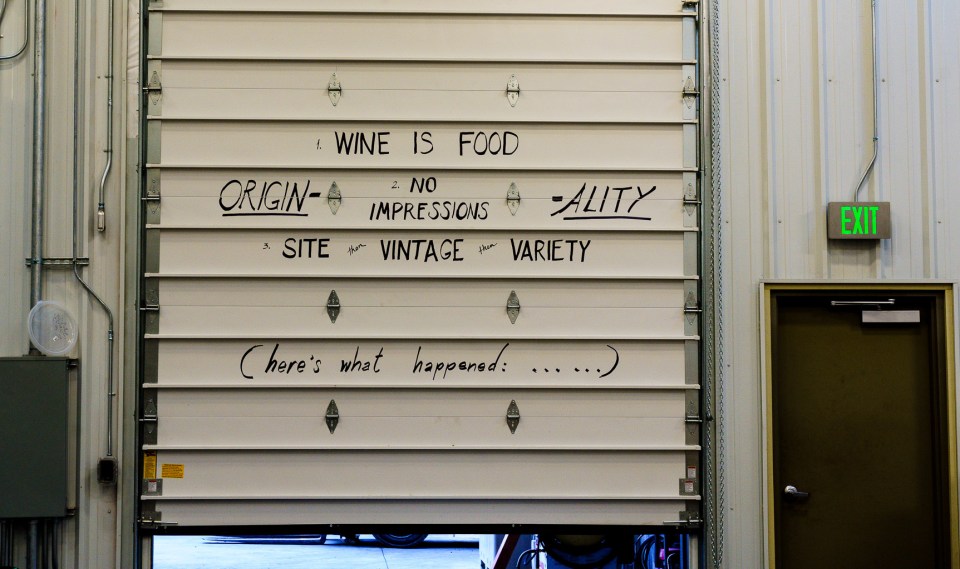 1. WINE IS FOOD
ORIGIN- 2. NO IMPRESSIONS -ALITY
3. SITE then VINTAGE then VARIETY
(here's what happened: ... ...)
EXIT